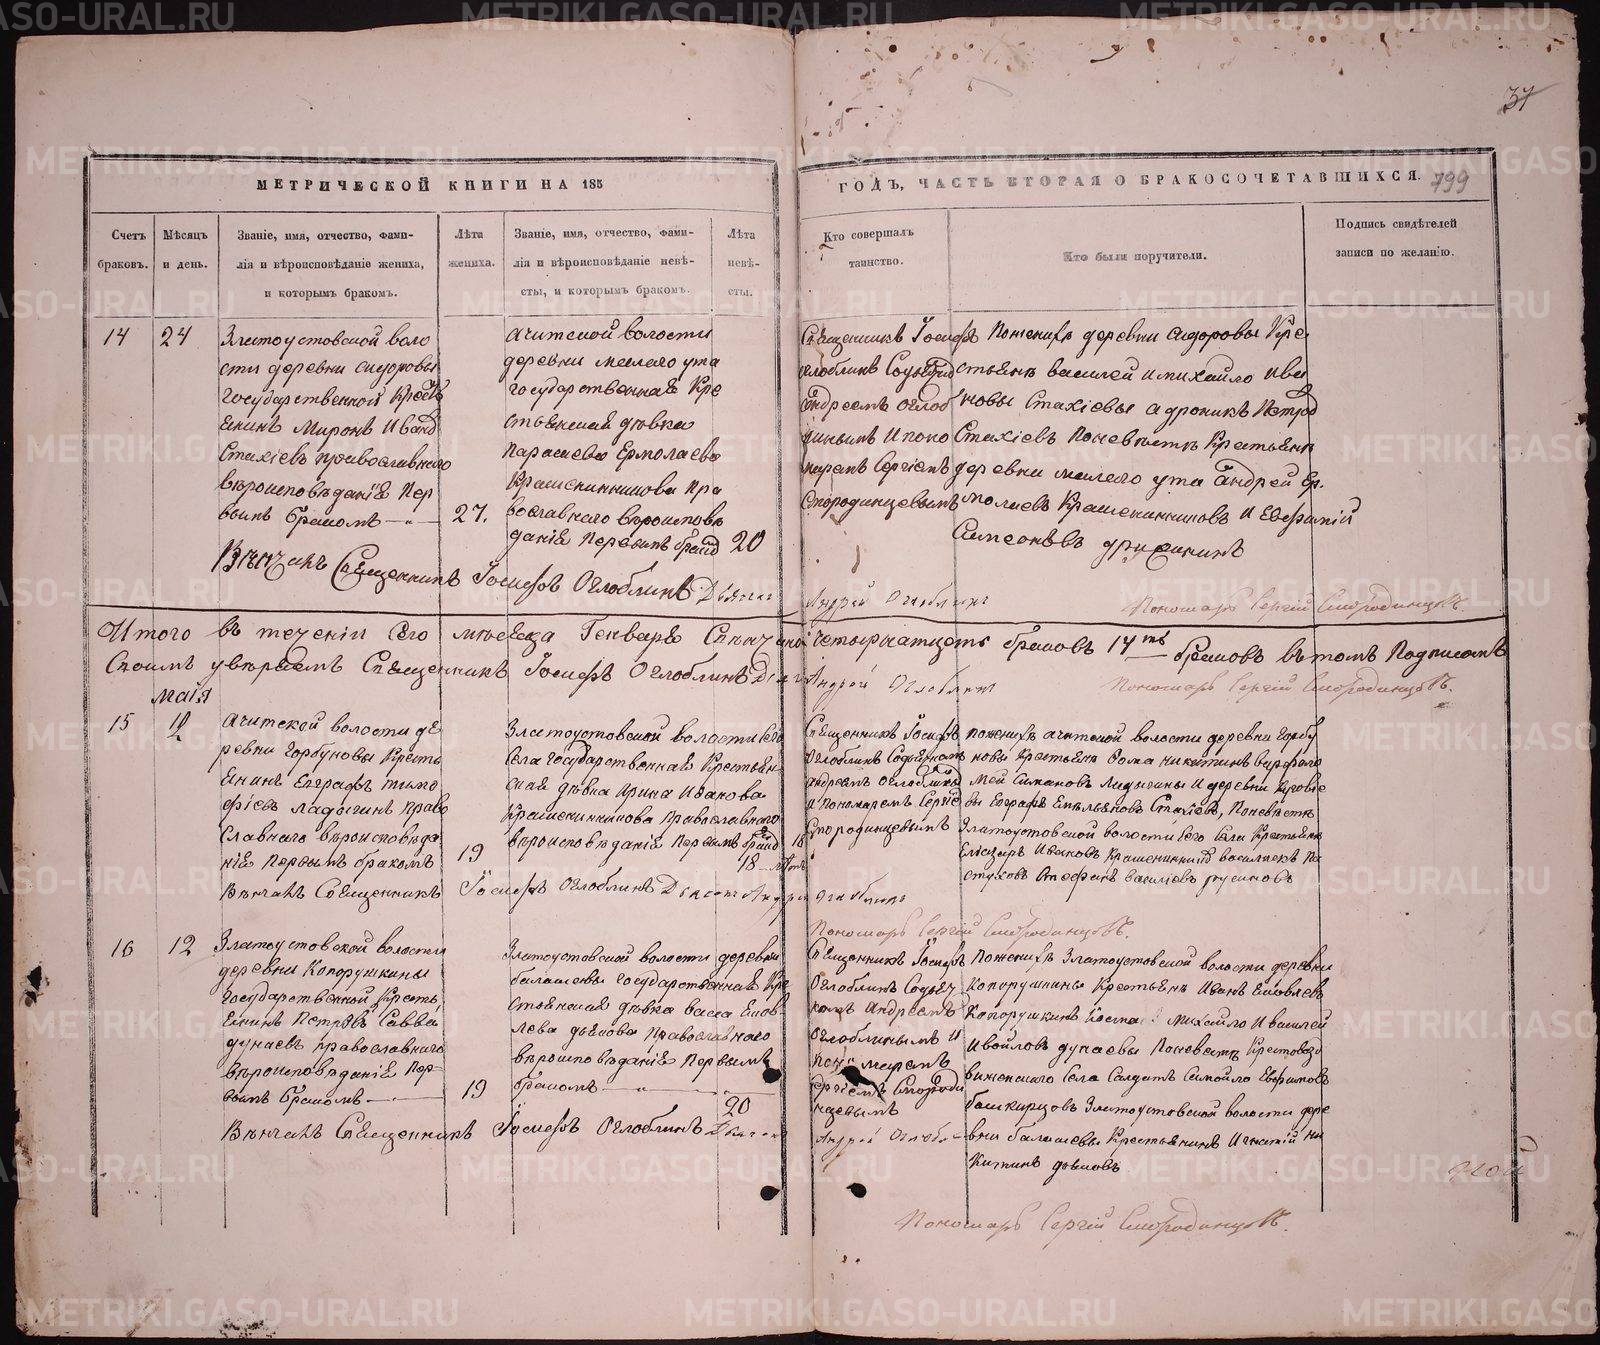 37
МЕТРИЧЕСКОЙ КНИГИ НА 185
ГОДЪ, ЧАСТЬ ВТОРАЯ О БРАКОСОЧЕТАВШИХСЯ.
799
Счетъ браковъ.
Мѣсяцъ и день.
Званіе, имя, отчество, фами-
лія и вѣроисповѣданіе жениха,
и которымъ бракомъ.
Лѣта жениха.
Званіе, имя, отчество, фами-
лія и вѣроисповѣданіе невѣ-
сты, и которымъ бракомъ.
Лѣта невѣ-
сты.
Кто совершалъ
таинство.
Кто были поручители.
Подпись свидѣтелей
записи по желанію.
14
24
Златоустовской воло
сти деревни Сидоровы
государственной Кресть
янинъ Миронъ Иванов
Стахіевъ православнаго
вѣроисповѣданія Пер
вымъ бракомъ
27.
Ачитской волости
деревни малаго ута
государственная Кре
стьянская дѣвка
Парасковья Ермолаева
Крашенинникова Пра
вославнаго вѣроисповѣ
данія Первымъ бракомъ
20
Священникъ Іосифъ
Оглоблинъ
Андреемъ Оглоб
линымъ И поно
маремъ Сергіемъ
Смородинцевымъ
По женихѣ деревни Сидоровы Кре
стьяне василей и михайло Ива
новы Стахіевы Андроникъ Петров
Стахіевъ По невѣстѣ Крестьяне
деревни малаго ута Андрей Ер
молаевъ Крашенинниковъ и Евфимій
Симеоновъ
Вѣнчалъ Священникъ Іосифъ Оглоблинъ Дьячекъ Андрей Оглоблинъ
Пономарь Сергій Смородинцовъ.
Итого въ теченіи Сего мѣсяца Генваря Свѣнчано Четырнатцеть браковъ 14ть браковъ въ томъ Подписомъ
Своимъ увѣряемъ Священникъ Іосифъ Оглоблинъ Дьячекъ Андрей Оглоблинъ
Пономарь Сергій Смородинцовъ.
маія
15
Ачитской волости де
ревни Горбуновы Кресть
янинъ Евграфъ тимо
фѣевъ Ладыгинъ Право
славнаго вѣроисповѣда
нія первымъ бракомъ
19
Златоустовской волости Сего
села государственная Крестьян
ская дѣвка Ирина Иванова
Крашенинникова Православнаго
вѣроисповѣданія Первымъ браком
18
18 лѣтъ
Священникъ Іосифъ
Оглоблинъ
Андреемъ Оглоблины
и Пономаремъ Сергіе
Смородинцевымъ
По женихѣ Ачитской волости деревни Горбу
новы Крестьяне Фома никитинъ
Ладыгины И деревни
Евграфъ Емельяновъ Стахіевъ, По невѣстѣ
Златоустовской волости Сего Села Крестьяне
Елизаръ Ивановъ Крашенинник
Стефанъ василіевъ русиновъ
Вѣнчалъ Священникъ Іосифъ Оглоблинъ Дьячекъ Андрей Оглоблинъ
Пономарь Сергій Смородинцовъ.
16
12
Златоустовской волости
деревни Копорушкины
Государственной Кресть
янинъ Петръ Савва
дунаевъ православнаго
вѣроисповѣданія Пер
вымъ бракомъ
19
Златоустовской волости деревни
балашевы государственная Кре
стьянская дѣвка васса Яков
лева дьякова Православнаго
вѣроисповѣданія Первымъ
бракомъ
20
Священникъ Іосифъ
Оглоблинъ
Андреемъ
Оглоблинымъ И
Пономаремъ
Сергіемъ Смороди
нцевымъ
По женихѣ Златоустовской волости деревни
Копорушкины Крестьяне Иванъ Яковлевъ
Копорушкинъ михайло И василей
дунаевы По невѣстѣ Крестовозд
виженскаго Села Салдатъ Самойло Евфимовъ
башкирцовъ Златоустовской волости дере
вни балашевы Крестьянинъ Игнатій ни
китинъ дьяковъ
Вѣнчалъ Священникъ Іосифъ Оглоблинъ Дьячекъ
Андрей Оглобли
Пономарь Сергій Смородинцовъ.
METRIKI.GASO-URAL.RU